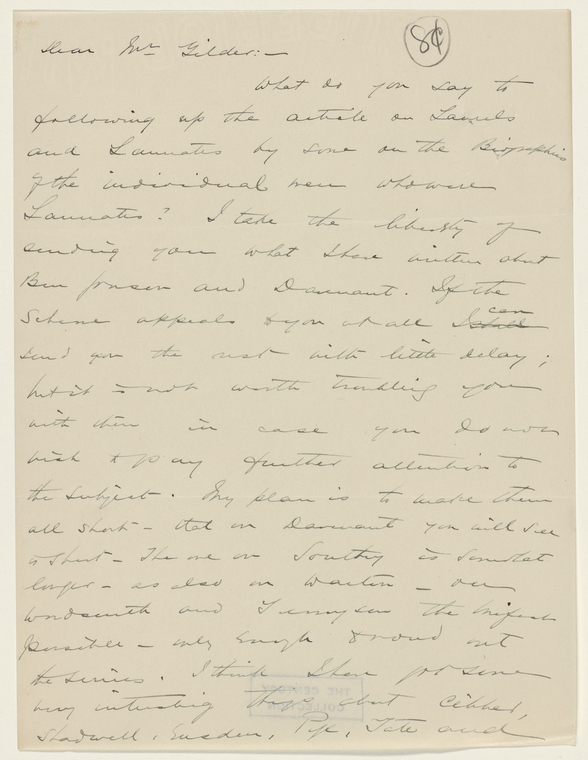 8¢
Dear Mr Gilder:—
What do you say to
following up the article on Laurels
and Laureates by some on the Biographies
of the individual men who were
Laureates? I take the liberty of
sending you what I have written about
Ben Jonson and Davenant. If the
Scheme appeals to you at all I shall can
send you the rest with little delay;
but it is not worth troubling you
with them in case you do not
wish to pay further attention to
the subject. My plan is to make them
all short — that on Davenant you will see
is short — The one on Southey is somewhat
longer — as also on Warton — on
Wordsworth and Tennyson the briefest
possible — only enough to round out
the series. I think I have got some
very interesting things about Cibber,
Shadwell, Eusden, Pye, Tate and
THE CENTURY
COLLECTION